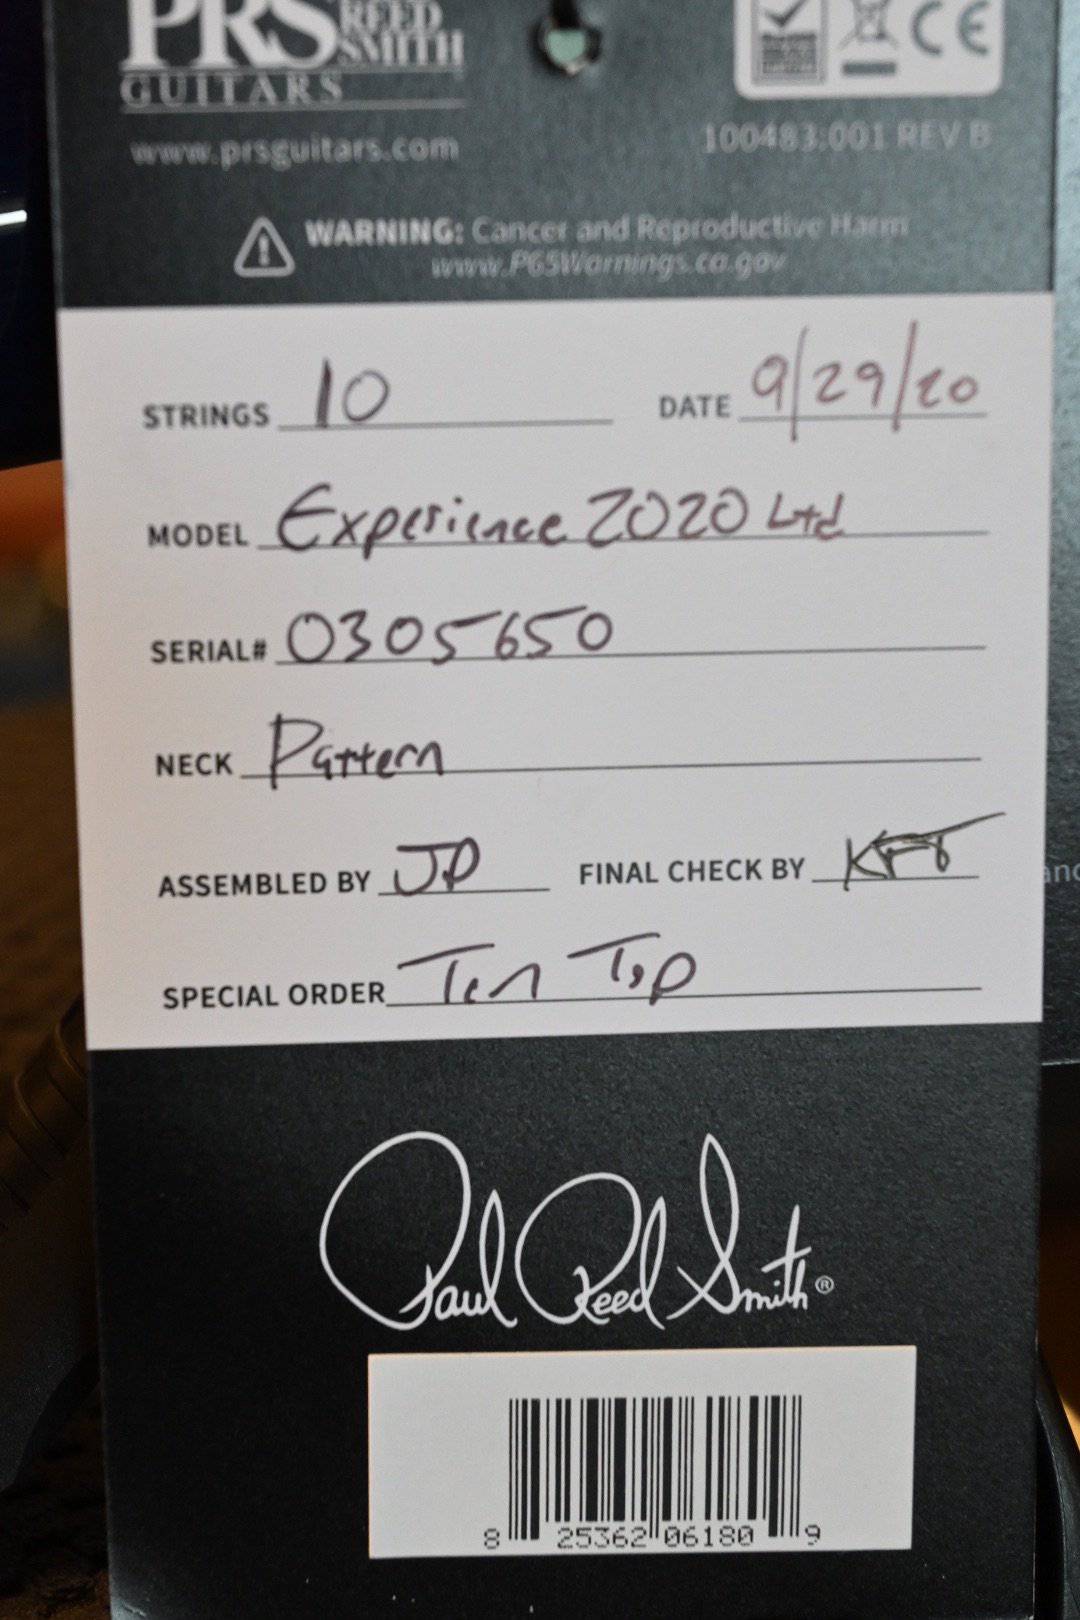 PRS REED
SMITH
GUITARS
www.prsguitars.com
CE
100483:001 REV B
WARNING: Cancer and Reproductive Harm
www.P65Warnings.ca.gov
STRINGS 10 DATE 9/29/20
MODEL Experience 2020 Ltd
SERIAL# 0305650
NECK Pattern
ASSEMBLED BY JP FINAL CHECK BY
SPECIAL ORDER Ten Top
Paul Reed Smith®
8 25362 06180 9